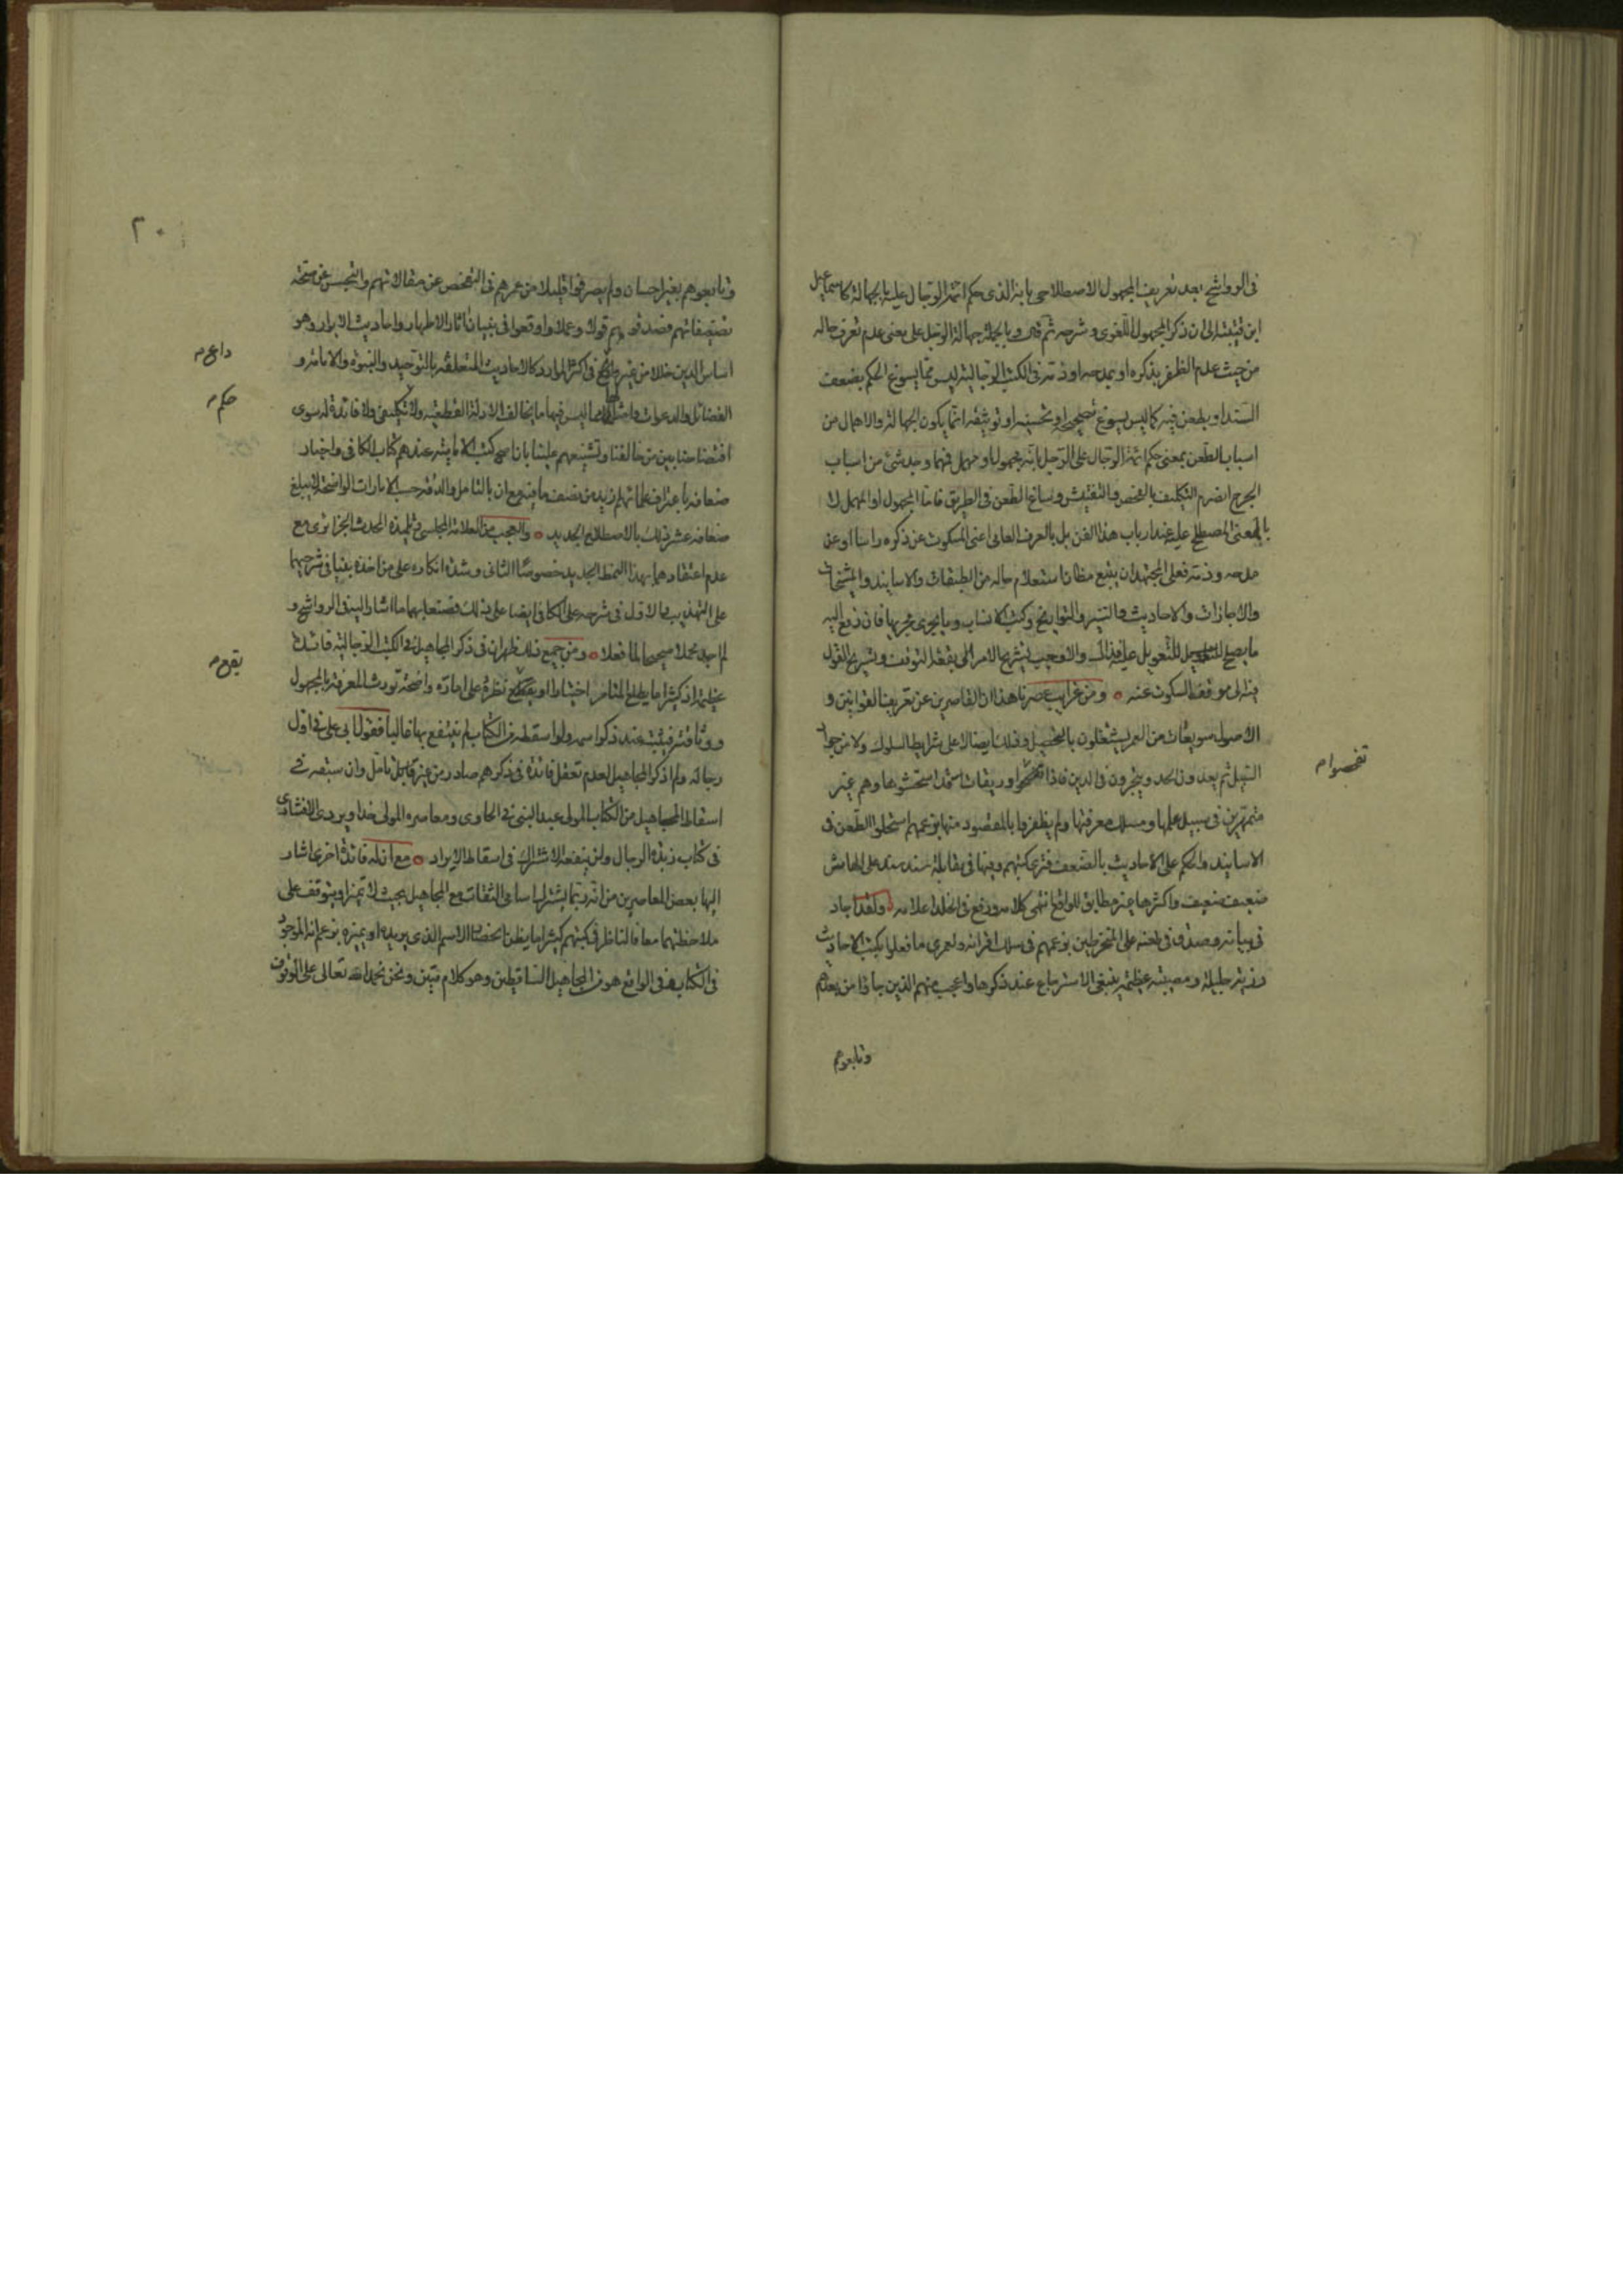 فى الرواشح بعد تعريف المجهول الاصطلاحى بانه الذى حكم ائمة الرجال عليه بالجهالة كاسماعيل
ابن قتيبة الى ان ذكر المجهول اللغوى وشرحه ثم قال وبالجملة جهالة الرجل على معنى عدم تعرف حاله
من حيث عدم الظفر بذكره او بمدحه او ذمه فى الكتب الرجالية ليس مما يسوغ الحكم بضعف
السند او يطعن فيه كما ليس يسوغ تصحيحه او تحسينه او توثيقه انما يكون الجهالة والاهمال من
اسباب الطعن بمعنى حكم ائمة الرجال على الرجل بانه مجهول او مهمل فمهما وجد شئ من اسباب
الجرح انصرم التكليف بالفحص والتفتيش وساغ الطعن فى الطريق فاما المجهول او المهمل لا
بالمعنى المصطلح عليه عند ارباب هذا الفن بل بالعرف العامى اعنى المسكوت عن ذكره راسا او عن
مدحه وذمه فعلى المجتهد ان يتبع مظان استعلام حاله من الطبقات والاسانيد والمشيخات
والاجازات والاحاديث والسير والتواريخ وكتب الانساب وما يجرى مجريها فان وقع اليه
ما يصلح للتعويل عليه فذاك والا وجب تسريح الامر الى بقعة التوقف وتسريح القول
فيه الى موقف السكوت عنه ومن غرايب عصرنا هذا ان القاصرين عن تعريف القوانين و
الاصول سويعات من العمر يشتغلون بالتحصيل وذلك ايضا لا على شرايط السلوك ولا من جهات
السبيل ثم يعدون الحد ويتجرون فى الدين فاذا تصفحوا وريقات استحشوها وهم غير
متمهرين فى سبيل علمها ومسلك معرفتها ولم يظفروا بالمقصود منها بزعمهم استحلوا الطعن فى
الاسانيد والحكم على الاحاديث بالضعف فترى كتبهم وفيها فى مقابلة سند سند على الهامش
ضعيف ضعيف واكثرها غير مطابق للواقع انتهى كلامه ورفع فى الخلد اعلامه ولقد اجاد
فى بيانه وصدق فى طعنه على المنخرطين بزعمهم فى سلك اقرانه ولعمرى ما فعلوا بكتب الاحاديث
رزية جليلة ومصيبة عظيمة ينبغى الاسترجاع عند ذكرها واعجب منهم الذين جاؤا من بعدهم
وتابعوهم
تفحصوا م
٢٠
وتابعوهم بغير احسان ولم يصرفوا قليلا من عمرهم فى التفحص عن مقالاتهم والتجسس عن صحة
تضعيفاتهم فصدقوهم قولا وعملا واوقعوا فى بنيان اثار الاطهار واحاديث الابرار وهو
اساس الدين خللا من غير فى اكثر الموارد كالاحاديث المتعلقة بالتوحيد والنبوة والامامة و
الفضائل والدعوات مما ليس فيها ما يخالف الادلة القطعية ولا تكليفى ولا فائدة له سوى
افتضاحنا بين من خالفنا وتشنيعهم علينا بان اصح كتب الامامية عندهم كتاب الكافى واخبار
ضعافه باعتراف علمائهم ازيد من نصف ما فيه مع ان بالتامل والدقة حسب الامارات الواضحة لا يبلغ
ضعافه عشر ذلك بالاصطلاح الجديد والعجب من العلامة المجلسى وتلميذه المحدث الجزائرى مع
عدم اعتقادهما بهذا النمط الجديد خصوصا الثانى وشدة انكاره على من اخذه بنيا فى شرحيهما
على التهذيب والاول فى شرحه على الكافى ايضا على ذلك فصنعا بهما ما اشار اليه فى الرواشح و
لم اجد محملا صحيحا لما فعلا ومن جميع ذلك ظهر ان فى ذكر المجاهيل فى الكتب الرجالية فائدة
عظيمة اذ كثيرا ما يطلع المتامر اختيارا او نظره على امارة واضحة تورث المعرفة بالمجهول
ووثاقته فيثبته عند ذكر اسمه ولو اسقطه من الكتاب لم ينتفع بها غالبا فقول ابى على فى اول
رجاله ولم اذكر المجاهيل لعدم تعقل فائدة فى ذكرهم صادر من غير تامل وان سبقه فى
اسقاط المجاهيل من الكتاب المولى عبد النبى فى الحاوى ومعاصره المولى خدا ويردى الافشارى
فى كتاب زبدة الرجال ولن ينفعه الاشتراك فى اسقاط الايراد مع ان له فائدة اخرى اشار
اليها بعض المعاصرين من انه ربما يشترك اسامى الثقات مع المجاهيل بحيث لا تميز او يتوقف على
ملاحظتهما معا فالناظر فى كتبهم كثيرا ما يظن انحصار الاسم الذى يريده او يميزه بزعم انه الموجود
فى الكتاب وفى الواقع هو من المجاهيل الساقطين وهو كلام متين ونحن بحمد الله تعالى على الوقوف
داع م
حكم م
يقع م